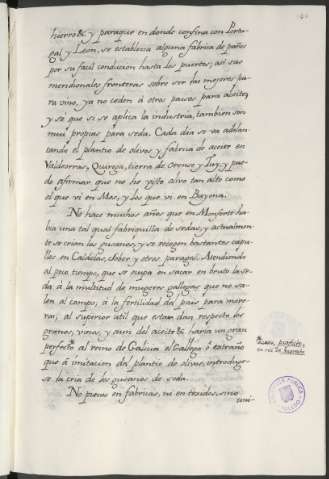 hierro &c. y paraque en donde confina con Portu-
gal y Leon, se establezca alguna fabrica de paños
por su facil conducion hasta los puertos; asi sus
meridionales fronteras sobre ser las mejores pa-
ra vino, ya no ceden á otros paises para aceite,
y sé que si se aplica la industria, tambien son
mui propias para seda. Cada dia se va adelan-
tando el plantio de olivos, y fabrica de aceite en
Valdeorras, Quiroga, tierra de Orense y Tuy, y pue-
do afirmar que no he visto olivo tan alto como
el que vi en Mos, y los que vi en Bayona.
No hace muchos años que en Monforte ha-
bia una tal qual fabriquilla de sedas, y actualmen-
te se crian los gusanos, y se recogen bastantes capu-
llos en Caldelas, Sober, y otros parages. Atendiendo
al poco tiempo, que se ocupa en sacar en bruto la se-
da á la multitud de mugeres gallegas que no sa-
len al campo, á la fertilidad del pais para more-
ras, al superior util que estan dan, respecto los
granos, vinos, y aun del aceite &c. haria un gran
perfecto al reino de Galicia el Gallego ó extraño
que á imitacion del plantio de olivos, introduge-
se la cria de los gusanos de seda.
No pienso en fabricas, ni en texidos, sino
uni-